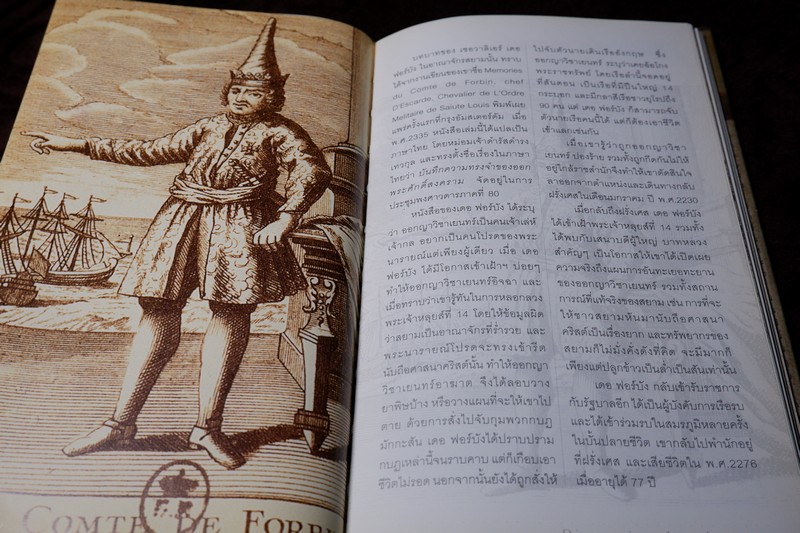 COMTE DE FORB
บทบาทของ เชอวาลิเอร์ เดอ
ฟอร์บัง ในอาณาจักรสยามนั้น ทราบ
ได้จากงานเขียนของเขาชื่อ Memories
du Comte de Forbin, chef
d'Escarde, Chevalier de L'Ordre
Meiliaire de Saiute Louis พิมพ์เผย
แพร่ครั้งแรกที่กรุงอัมสเตอร์ดัม เมื่อ
พ.ศ.2335 หนังสือเล่มนี้ได้แปลเป็น
ภาษาไทย โดยหม่อมเจ้าดำรัสดำรง
เทวกุล และทรงตั้งชื่อเรื่องในภาษา
ไทยว่า บันทึกความทรงจำของออก
พระศักดิ์สงคราม จัดอยู่ในการ
ประชุมพงศาวดารภาคที่ 80
หนังสือของเดอ ฟอร์บัง ได้ระบุ
ว่า ออกญาวิชาเยนทร์เป็นคนเจ้าเล่ห์
เจ้ากล อยากเป็นคนโปรดของพระ
นารายณ์แต่เพียงผู้เดียว เมื่อ เดอ
ฟอร์บัง ได้มีโอกาสเข้าเฝ้าฯ บ่อยๆ
ทำให้ออกญาวิชาเยนทร์อิจฉา และ
เมื่อทราบว่าเขารู้ทันในการหลอกลวง
พระเจ้าหลุยส์ที่ 14 โดยให้ข้อมูลผิด
ว่าสยามเป็นอาณาจักรที่ร่ำรวย และ
พระนารายณ์โปรดจะทรงเข้ารีต
นับถือศาสนาคริสต์นั้น ทำให้ออกญา
วิชาเยนทร์อาฆาต จึงได้ลอบวาง
ยาพิษบ้าง หรือวางแผนที่จะให้เขาไป
ตาย ด้วยการสั่งไปจับกุมพวกกบฏ
มักกะสัน เดอ ฟอร์บังได้ปราบปราม
กบฏเหล่านี้จนราบคาบ แต่ก็เกือบเอา
ชีวิตไม่รอด นอกจากนั้นยังได้ถูกสั่งให้
ไปจับตัวนายเดินเรืออังกฤษ ซึ่ง
ออกญาวิชาเยนทร์ ระบุว่าเคยฉ้อโกง
พระราชทรัพย์ โดยเรือลำนี้จอดอยู่
ที่สันดอน เป็นเรือที่มีปืนใหญ่ 14
กระบอก และมีกลาสีเรือชาวยุโรปถึง
90 คน แต่ เดอ ฟอร์บัง ก็สามารถจับ
ตัวนายเรือคนนี้ได้ แต่ก็ต้องเอาชีวิต
เข้าแลกเช่นกัน
เมื่อเขารู้ว่าถูกออกญาวิชา
เยนทร์ ปองร้าย รวมทั้งถูกกีดกันไม่ให้
อยู่ใกล้ราชสำนักจึงทำให้เขาตัดสินใจ
ลาออกจากตำแหน่งและเดินทางกลับ
ฝรั่งเศสในเดือนมกราคม ปี พ.ศ.2230
เมื่อกลับถึงฝรั่งเศส เดอ ฟอร์บัง
ได้เข้าเฝ้าพระเจ้าหลุยส์ที่ 14 รวมทั้ง
ได้พบกับเสนาบดีผู้ใหญ่ บาทหลวง
สำคัญๆ เป็นโอกาสให้เขาได้เปิดเผย
ความจริงถึงแผนการอันทะเยอทะยาน
ของออกญาวิชาเยนทร์ รวมทั้งสถาน
การณ์ที่แท้จริงของสยาม เช่น การที่จะ
ให้ชาวสยามหันมานับถือศาสนา
คริสต์เป็นเรื่องยาก และทรัพยากรของ
สยามก็ไม่มั่งคั่งดังที่คิด จะมีมากก็
เพียงแต่ปลูกข้าวเป็นล่ำเป็นสันเท่านั้น
เดอ ฟอร์บัง กลับเข้ารับราชการ
กับรัฐบาลอีก ได้เป็นผู้บังคับการเรือรบ
และได้เข้าร่วมรบในสมรภูมิหลายครั้ง
ในบั้นปลายชีวิต เขากลับไปพำนักอยู่
ที่ฝรั่งเศส และเสียชีวิตใน พ.ศ.2276
เมื่ออายุได้ 77 ปี